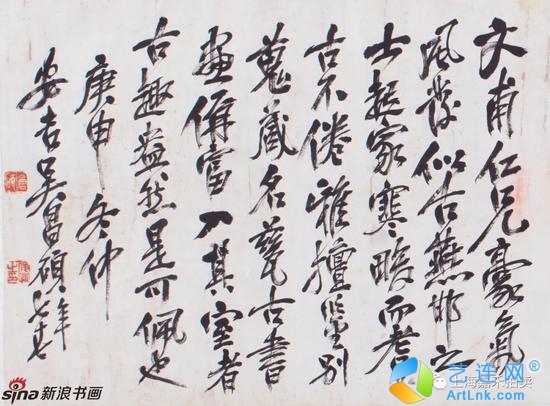 文甫仁兄豪氣
風發似古燕邯之
士起家寒畯而耆
古不倦雅擅鑒別
蒐藏名甆古書
畫備富入其室者
古趣盎然是可佩也
庚申冬仲
安吉吳昌碩年七十七
sina新浪书画
艺连网
ArtLnk.com
上海嘉禾拍卖